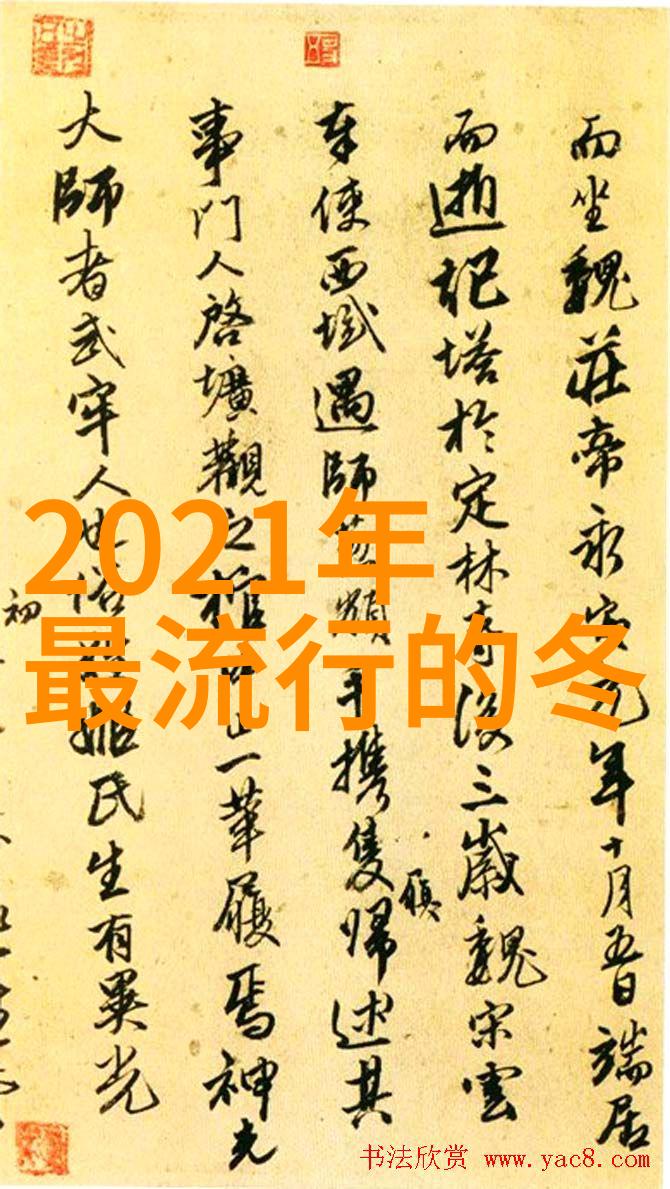 而坐魏莊帝永安元年十月五日端居
而逝起塔於定林寺後三歲魏宋雲
奉使西域遇師葱嶺手携隻歸述其
履
事門人啓壙觀之棺一革履焉神光
大師者武牢人也俗姬氏生有異光
初
2021年
最流行的冬
书法欣赏 www.yac8.com